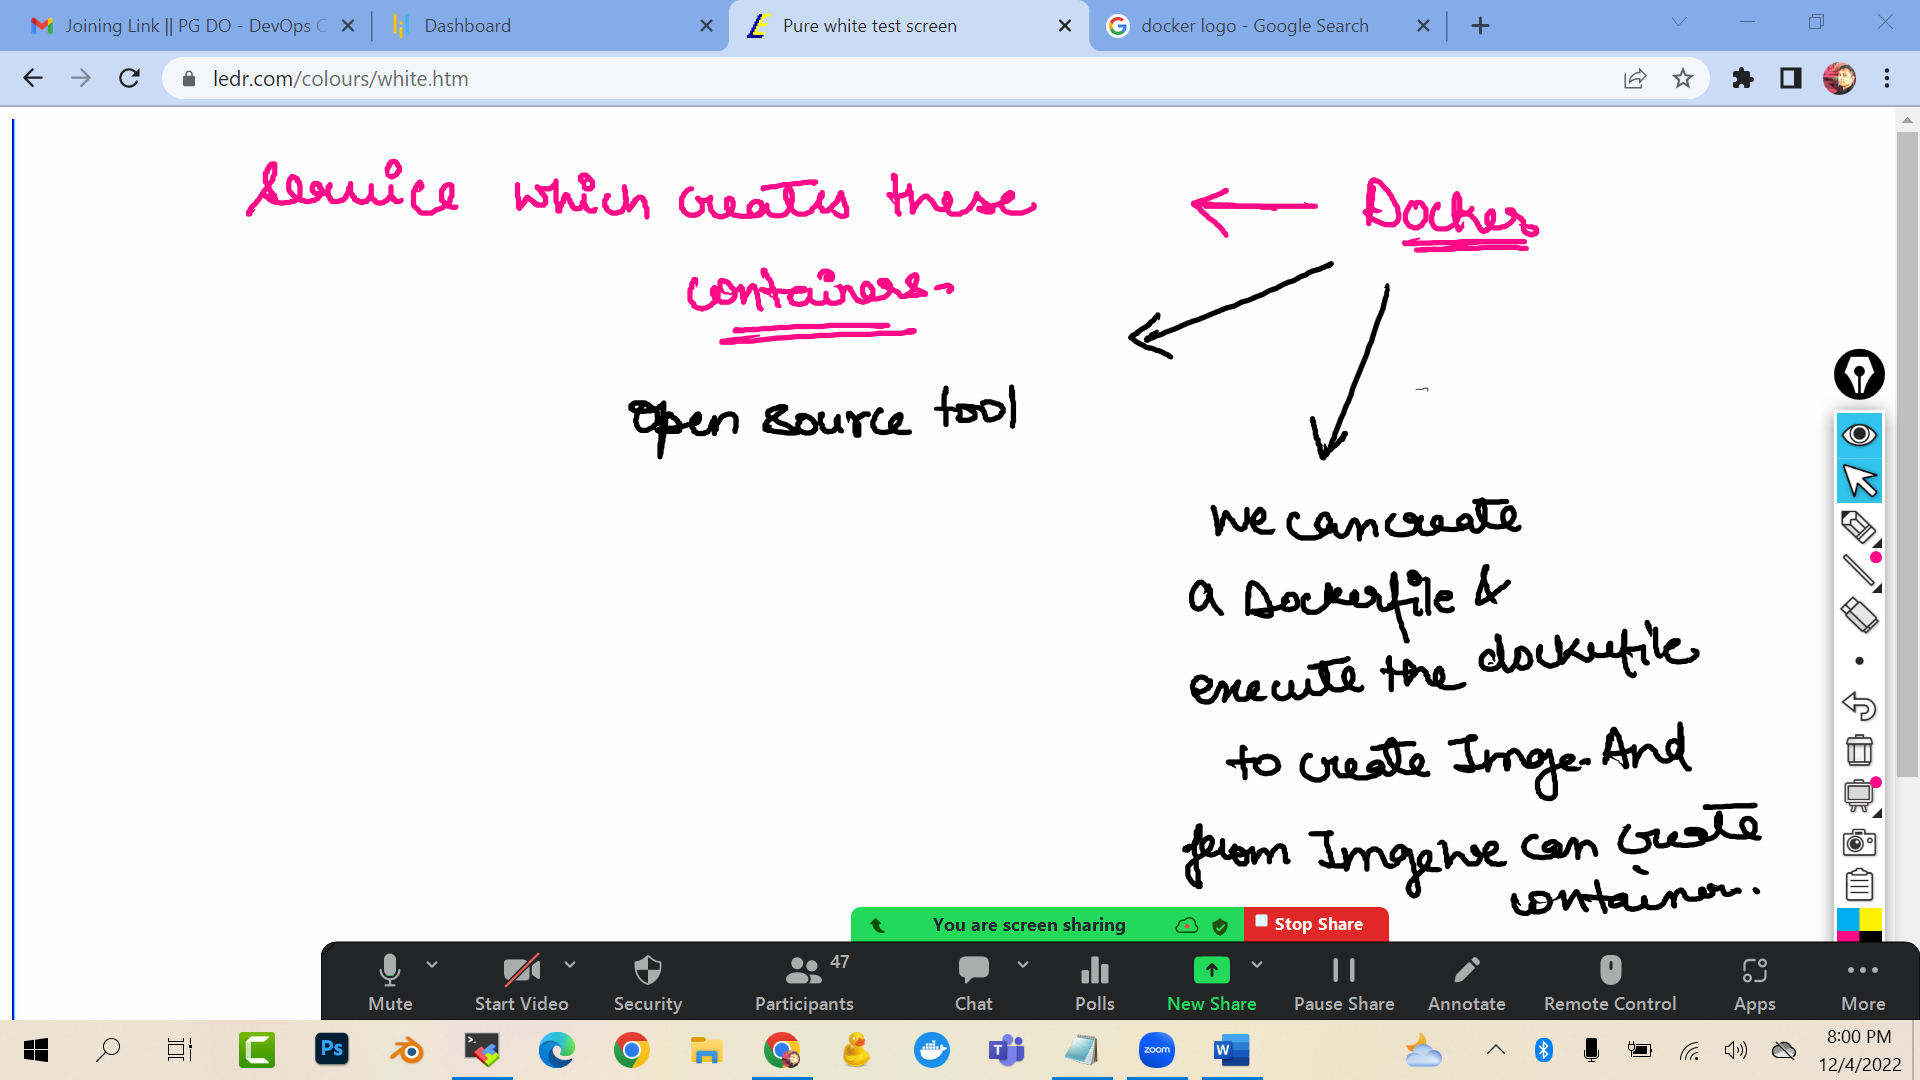 Joining Link || PG DO - DevOps C
Dashboard
Pure white test screen
docker logo - Google Search
ledr.com/colours/white.htm
Service which creates these ← Docker
containers.
open source tool
We can create
a Dockerfile &
execute the dockerfile
to create Imge. And
from Imge we can create
container.
You are screen sharing
Stop Share
47
Mute
Start Video
Security
Participants
Chat
Polls
New Share
Pause Share
Annotate
Remote Control
Apps
More
Ps
T
zoom
W
8:00 PM
12/4/2022